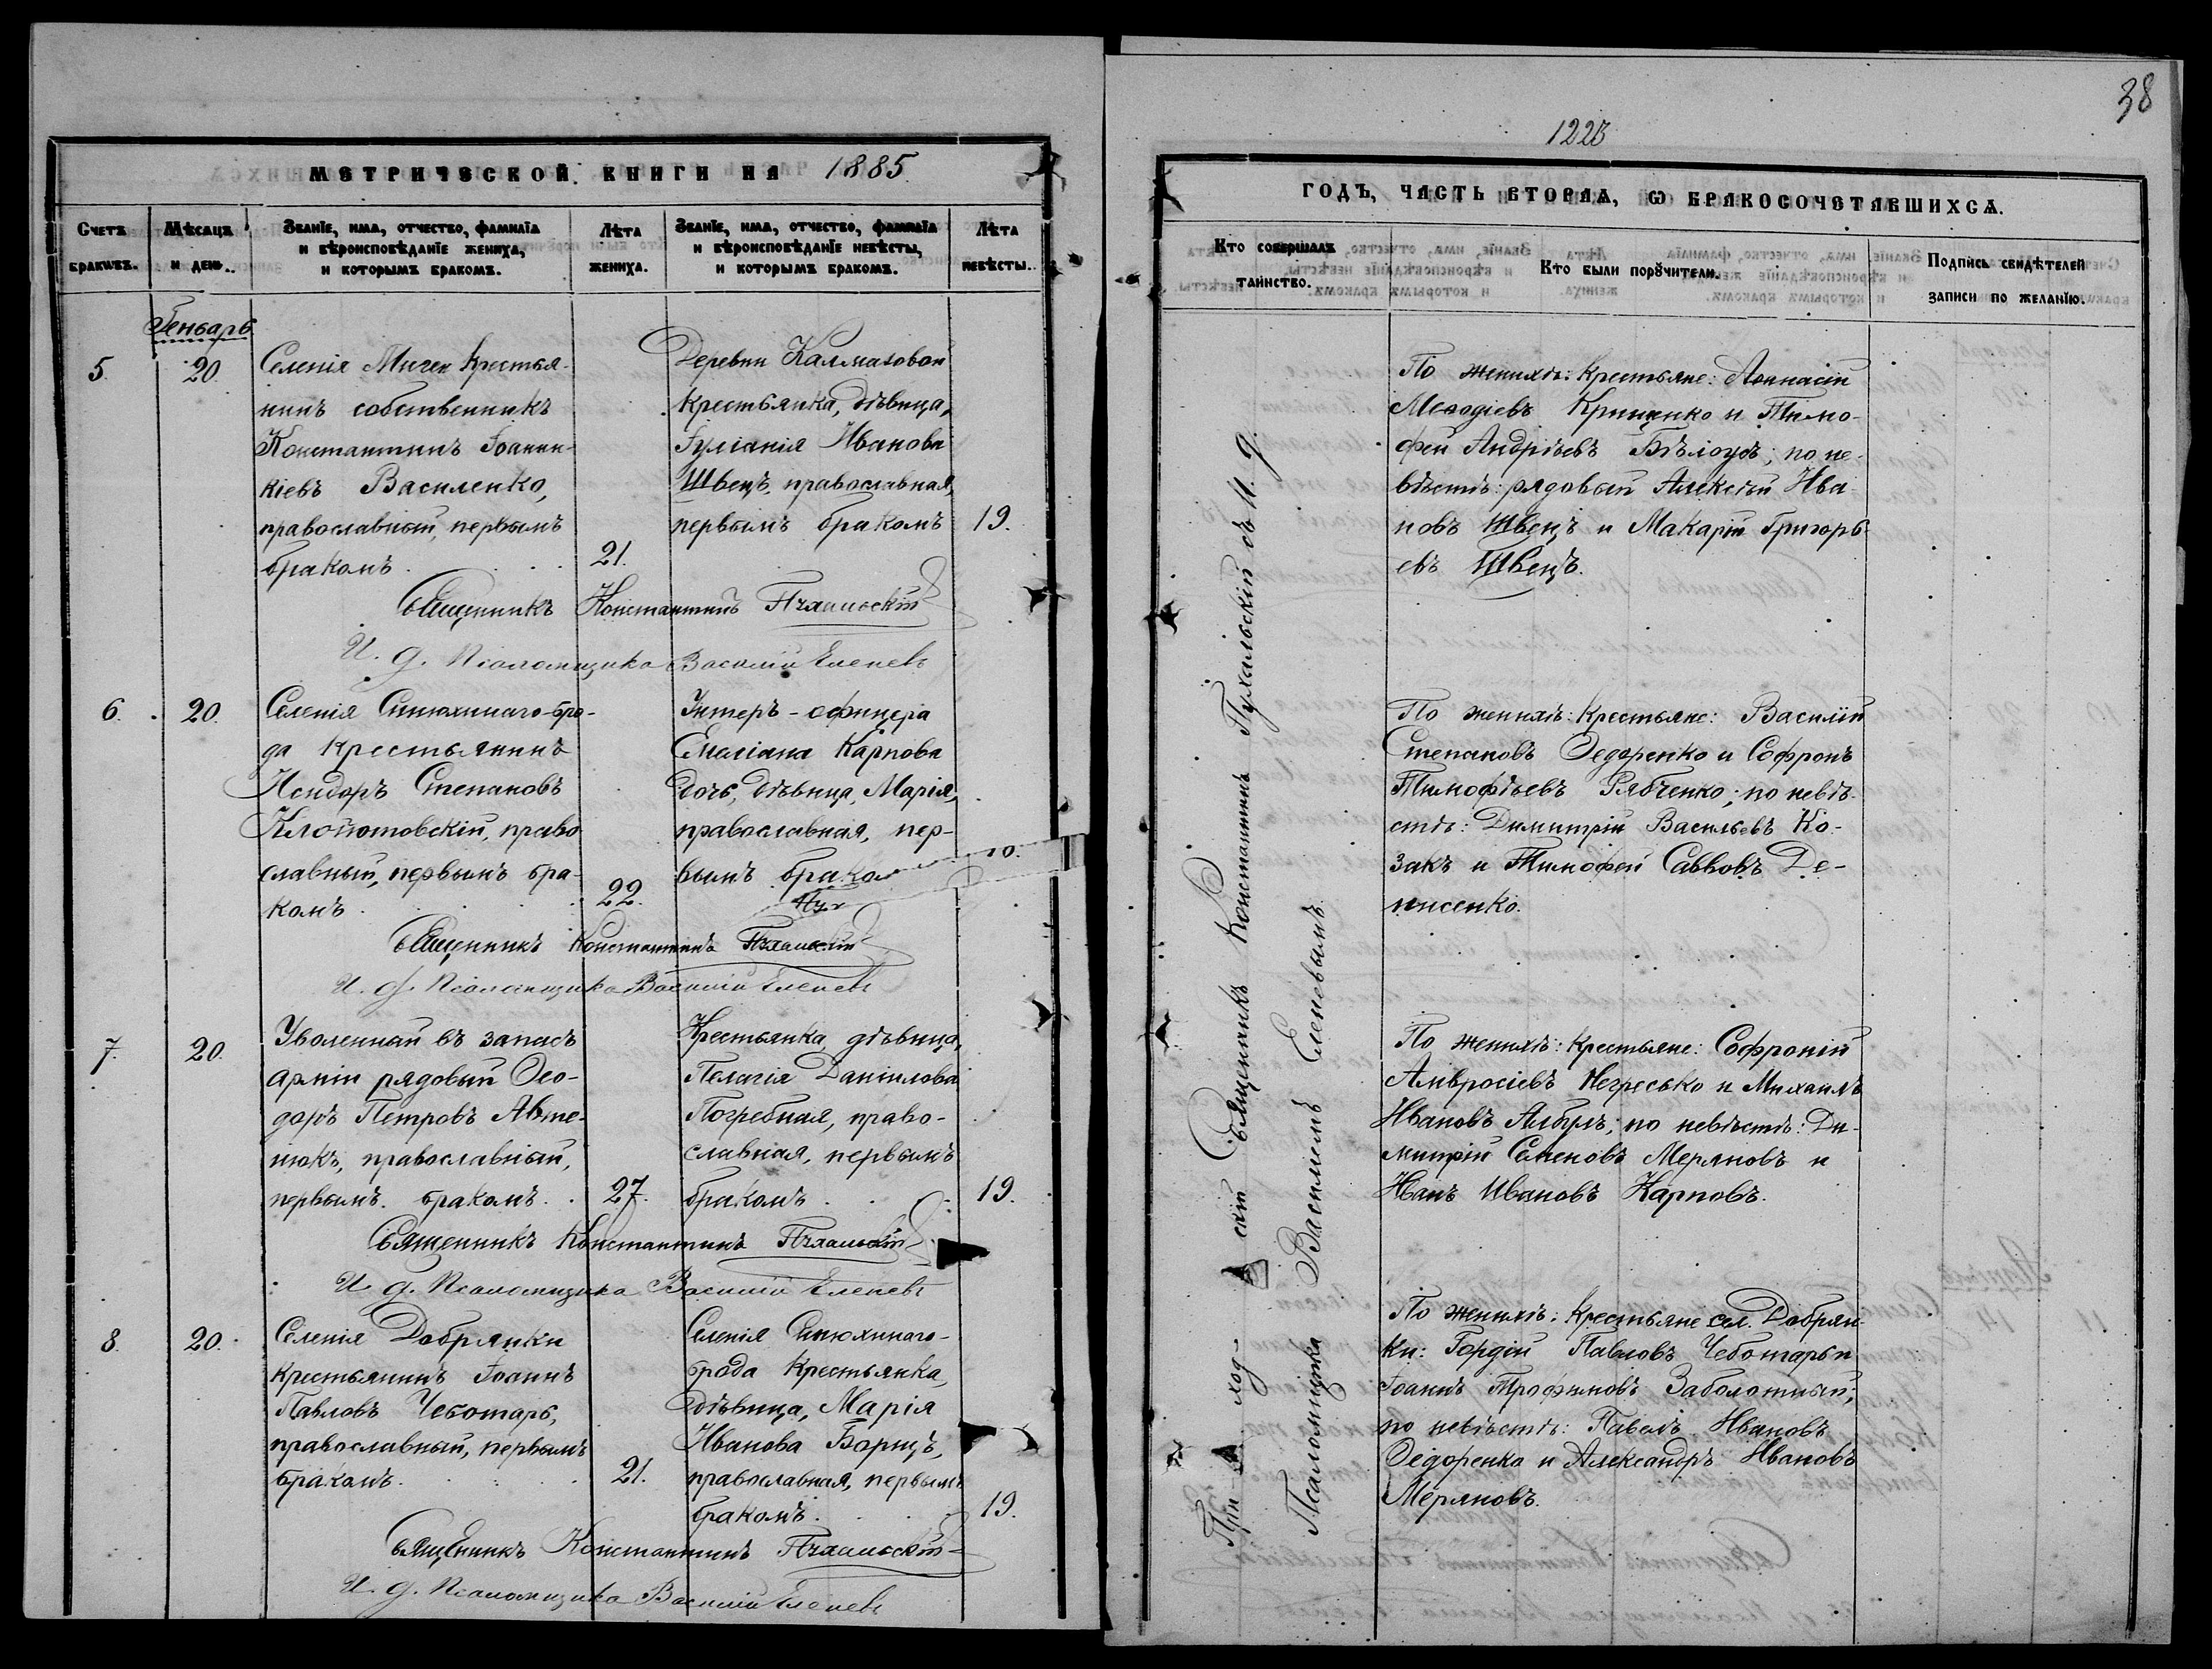 38
1223
МЕТРИЧЕСКОЙ КНИГИ НА 1885
ГОДЪ, ЧАСТЬ ВТОРАѦ, Ѡ БРАКОСОЧЕТАВШИХСѦ.
Счетъ браковъ.
Мѣсяцъ и день.
Званїе, имѧ, отчество, фамилїѧ
и вѣроисповѣданїе жениха,
и которымъ бракомъ.
Лѣта
жениха.
Званїе, имѧ, отчество, фамилїѧ
и вѣроисповѣданїе невѣсты,
и которымъ бракомъ.
Лѣта
невѣсты.
Кто совершалъ
таинство.
Кто были порꙋчители.
Подпись свидѣтелей
записи по желанїю.
Генварь
5.
20.
Селенія Мигеи крестья-
нинъ собственникъ
Константинъ Іоанни-
кіевъ Василенко,
православный, первымъ
бракомъ.
21.
Деревни Калмазовой
крестьянка, дѣвица,
Іуліанія Иванова
Швецъ, православная,
первымъ бракомъ
19.
По женихѣ: крестьяне: Аѳанасій
Меѳодіевъ Криценко и Тимо-
фей Андріевъ Бѣлоусъ; по не-
вѣстѣ: рядовый Алексѣй Ива-
новъ Швецъ и Макарій Григорь-
евъ Швецъ.
Священникъ Константинъ Пухальскій
И. д. Псаломщика Василій Еленевъ
6.
20.
Селенія Синюхинаго-бро-
да крестьянинъ
Исидоръ Степановъ
Клопотовскій, право
славный, первымъ бра-
комъ
22.
Унтеръ-офицера
Емеліана Карпова
дочь, дѣвица, Марія,
православная, пер-
вымъ брако
По женихѣ: крестьяне: Василій
Степановъ Ѳедоренко и Софронъ
Тимофѣевъ Рябченко; по невѣ-
стѣ: Димитрій Васильевъ Ко-
закъ и Тимофей Савковъ Де-
нисенко.
Священникъ Константинъ Пухальскій
И. д. Псаломщика Василій Еленевъ
7.
20.
Уволенный въ запасъ
арміи рядовый Ѳео-
доръ Петровъ Авте-
нюкъ, православный,
первымъ бракомъ.
27.
Крестьянка дѣвица,
Пелагія Даніилова
Погребная, право-
славная, первымъ
бракомъ
19.
По женихѣ: крестьяне: Софроній
Амвросіевъ Негресько и Михаилъ
Ивановъ Албулъ; по невѣстѣ: Ди-
митрій Семеновъ Меряновъ и
Иванъ Ивановъ Карповъ.
Священникъ Константинъ Пухальскій
И. д. Псаломщика Василій Еленевъ
8.
20.
Селенія Добрянки
крестьянинъ Іоаннъ
Павловъ Чеботарь,
православный, первымъ
бракомъ.
21.
Селенія Синюхинаго-
брода крестьянка,
дѣвица, Марія
Иванова Борщъ,
православная, первымъ
бракомъ.
19.
По женихѣ: крестьяне сел. Добрян-
ки: Гордій Павловъ Чеботарь и
Іоаннъ Трофимовъ Заболотный;
по невѣстѣ: Павелъ Ивановъ
Ѳедоренко и Александръ Ивановъ
Меряновъ.
Священникъ Константинъ Пухальскій
И. д. Псаломщика Василій Еленевъ
Приход- скій Священникъ Константинъ Пухальскій съ И. д.
Псаломщика Василіемъ Еленевымъ